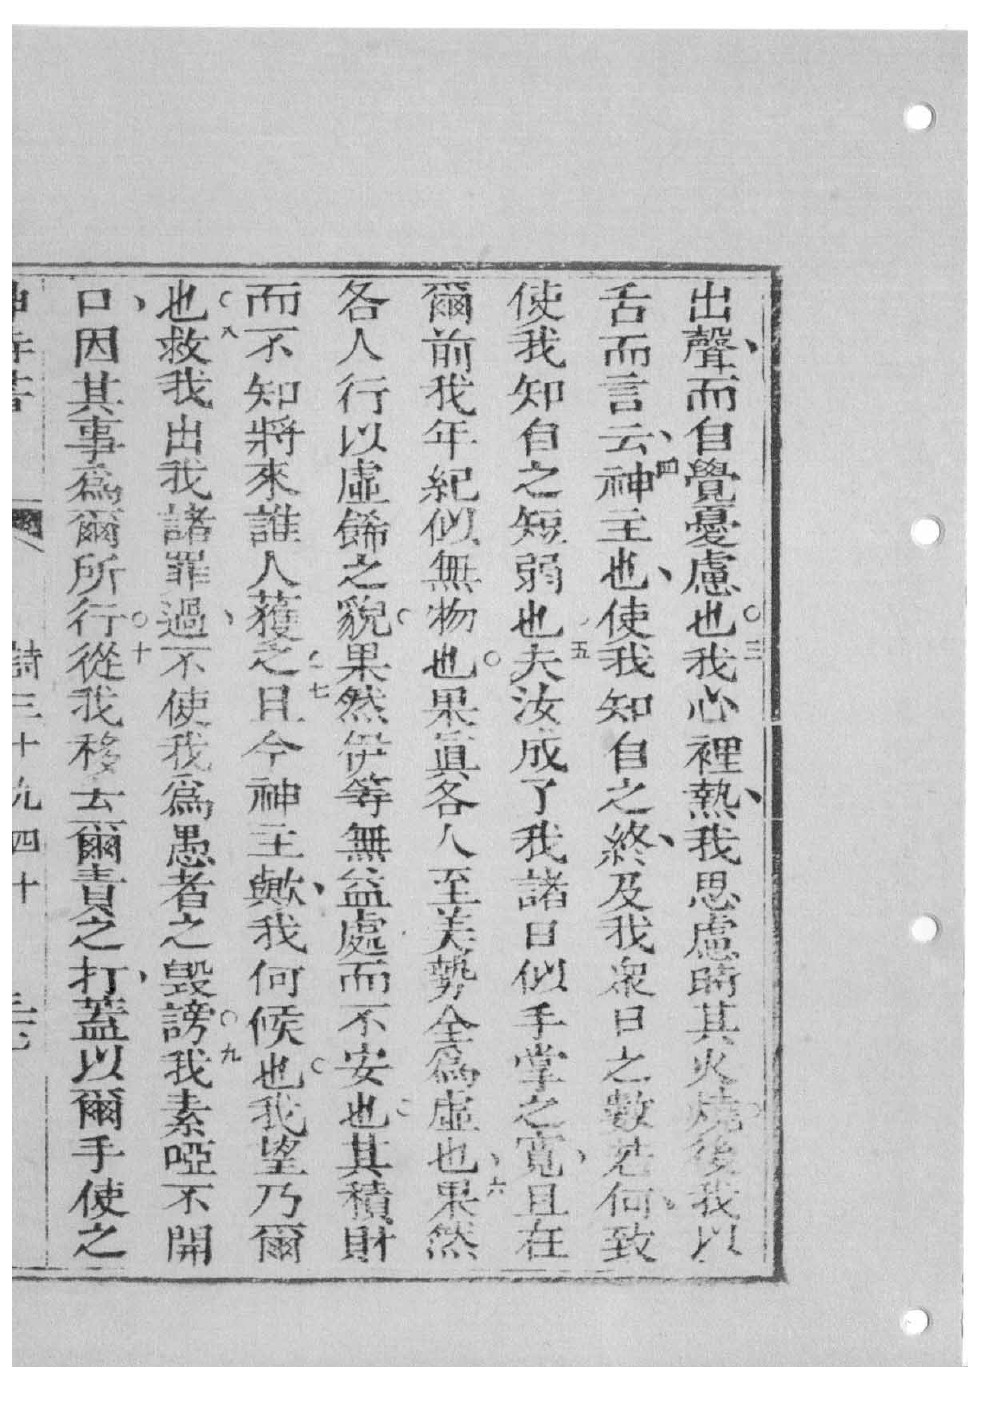 出聲、而自覺憂慮也。三我心裡熱、我思慮時其火燒。後我以
舌而言云、四神主也、使我知自之終、及我衆日之數若何、致
使我知自之短弱也。五夫汝成了我諸日似手掌之寬、且在
爾前我年紀似無物也。果眞各人至美勢全爲虛也、六果然
各人行以虛餙之貌。果然伊等無益處而不安也。其積財
而不知將來誰人獲之。七且今神主歟、我何候也。我望乃爾
也。八救我出我諸罪過、不使我爲愚者之毀謗。九我素啞不開
口、因其事爲爾所行。十從我移去爾責之打、蓋以爾手使之
詩三十九四十